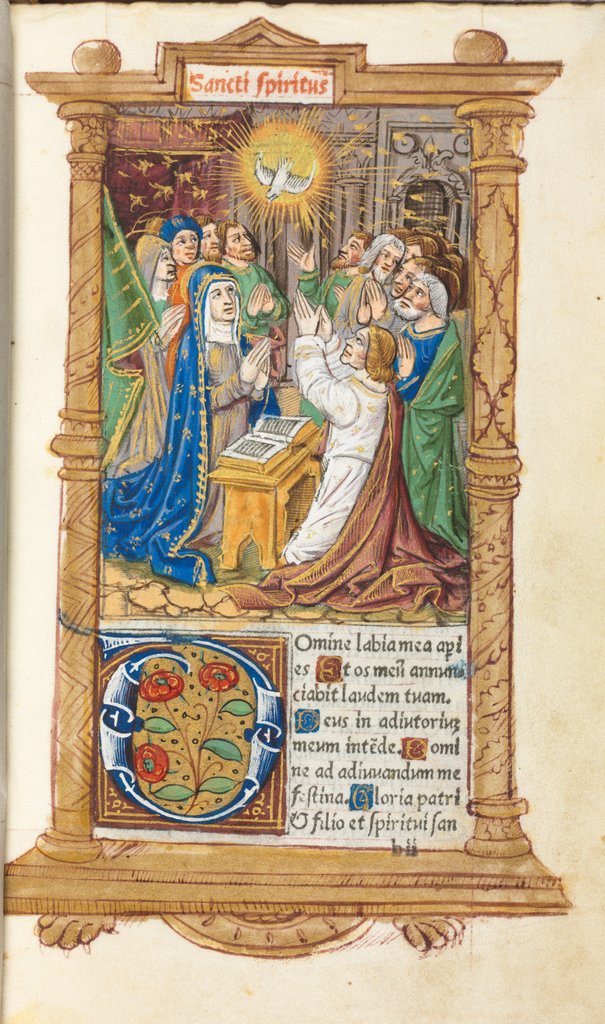 Sancti spiritus
Omine labia mea api
es Et os meū annun
ciabit laudem tuam.
Deus in adiutoriuʒ
meum intēde. Domi
ne ad adiuuandum me
festina. Gloria patri
& filio et spiritui san
b ii